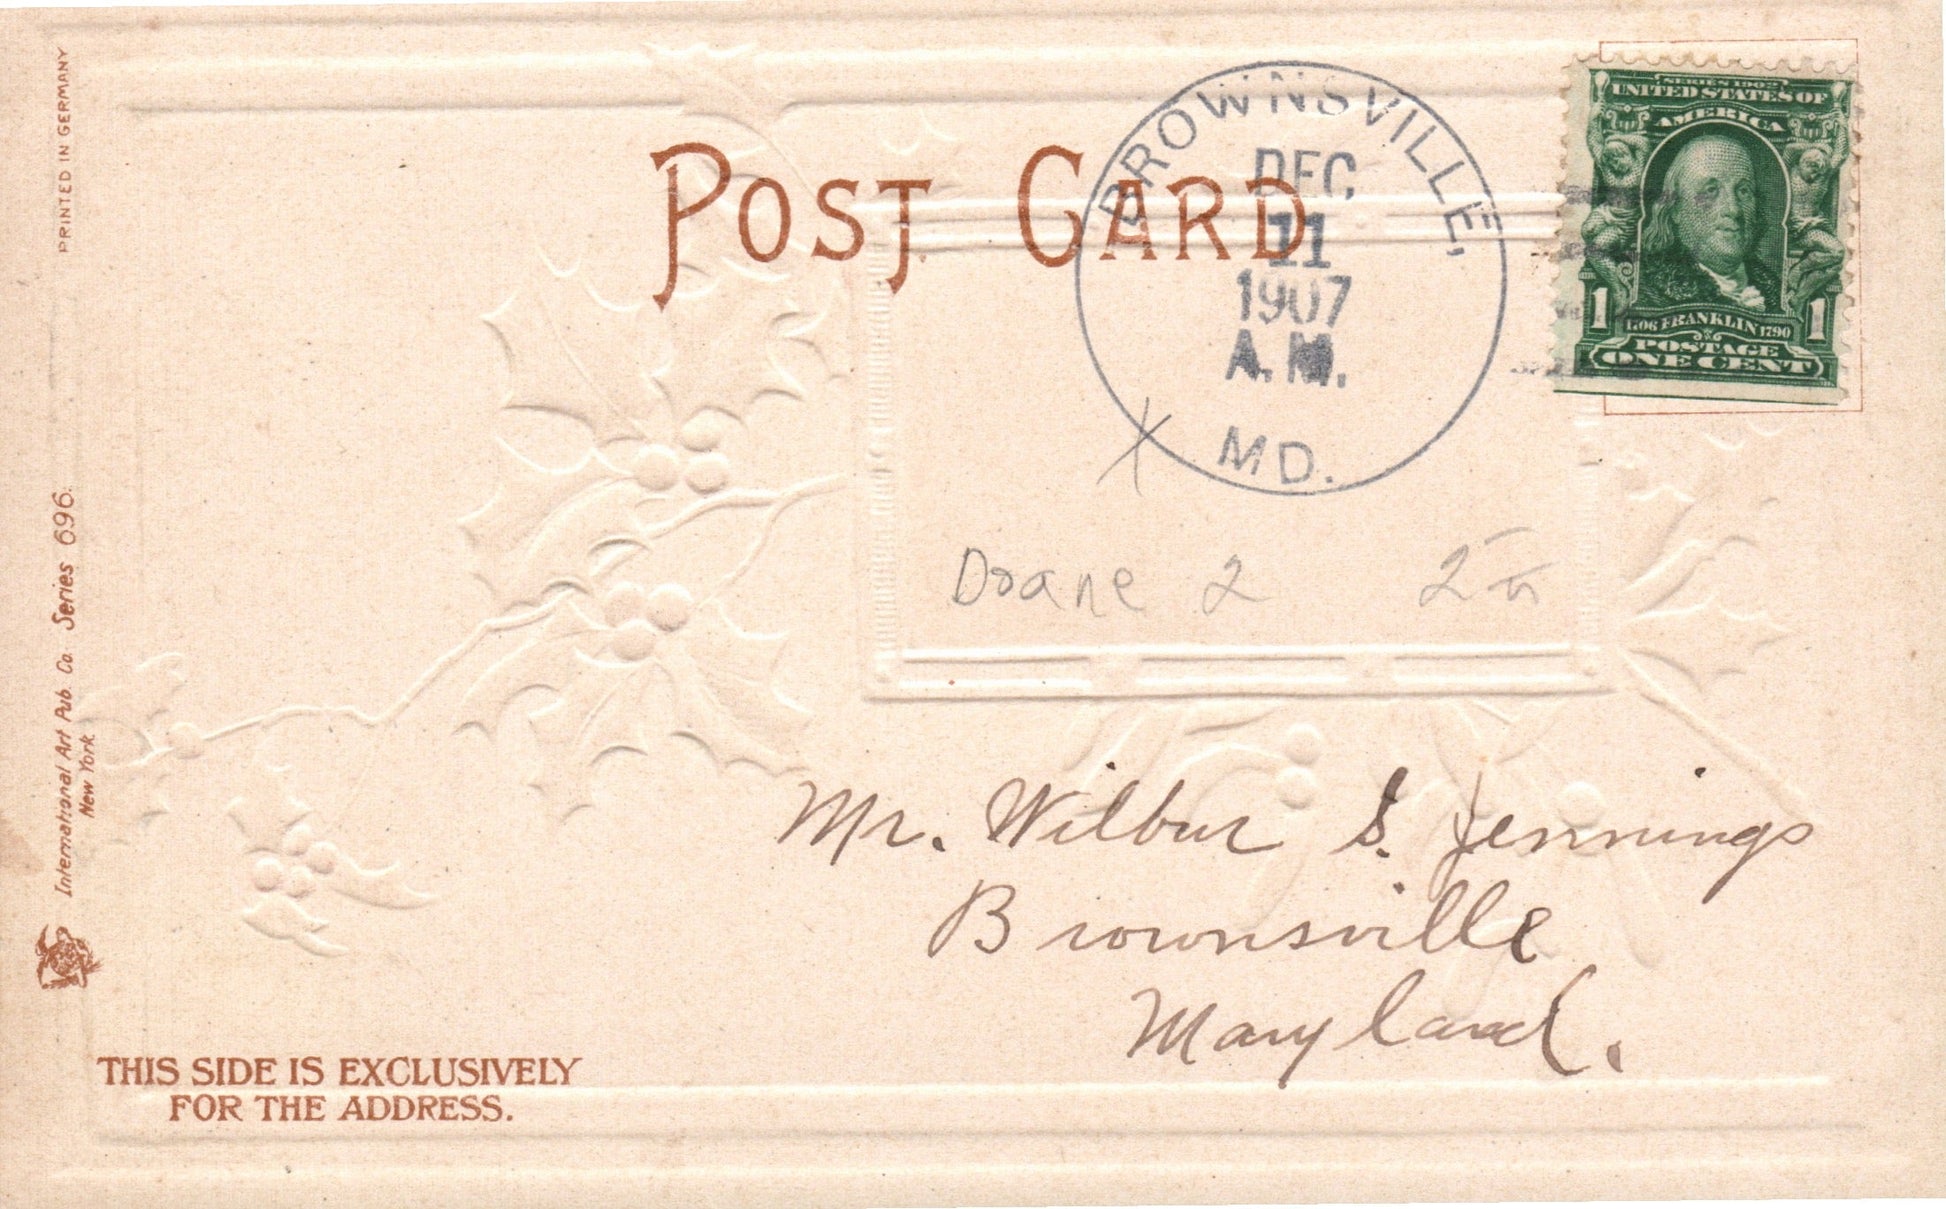 PRINTED IN GERMANY
POST CARD
BROWNSVILLE,
DEC
11
1907
A.M.
MD.
SERIES 1902
UNITED STATES OF
AMERICA
1706 FRANKLIN 1790
1 1
POSTAGE
ONE CENT
Doane 2
International Art Pub. Co. Series 696.
New York
Mr. Wilbur S. Jennings
Brownsville
Maryland.
THIS SIDE IS EXCLUSIVELY
FOR THE ADDRESS.